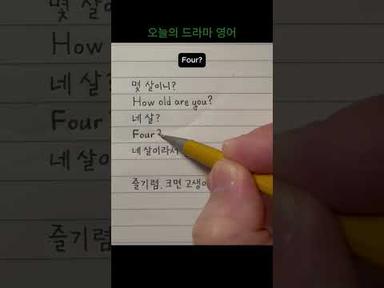 오늘의 드라마 영어
Four?
몇 살이니?
How old are you?
네 살?
Four?
네 살이라서
즐기렴, 크면 고생이
How
네
Four
네 살
즐기렴